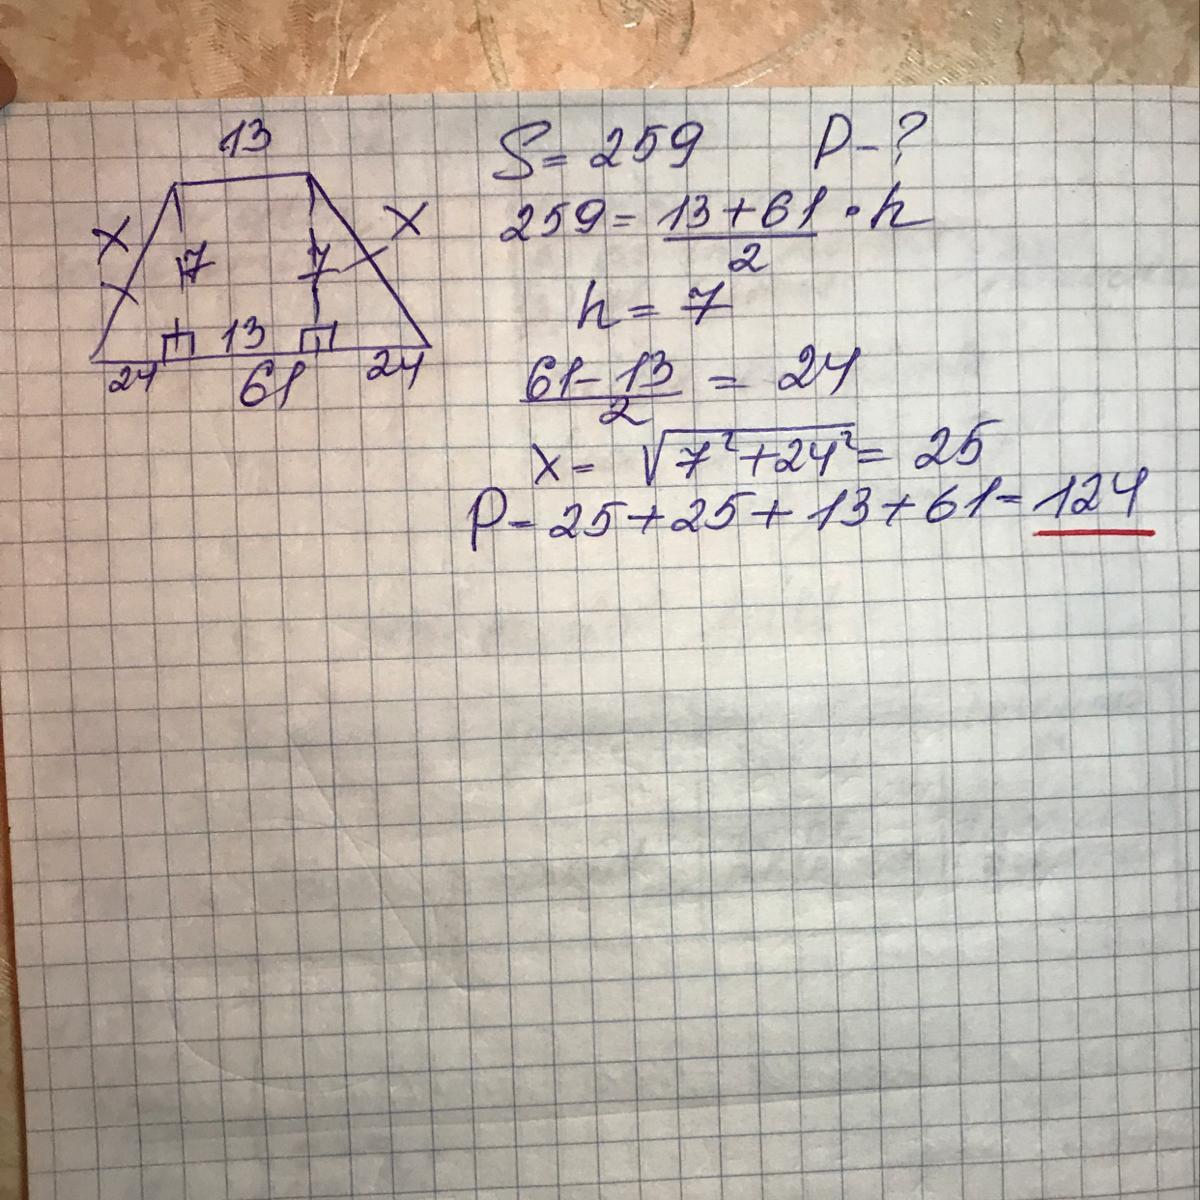 13
x
7
7
x
13
24
61
24
S = 259 P - ?
259 = \frac{13+61}{2} · h
h = 7
\frac{61-13}{2} = 24
x = \sqrt{7²+24²} = 25
P = 25 + 25 + 13 + 61 = 124